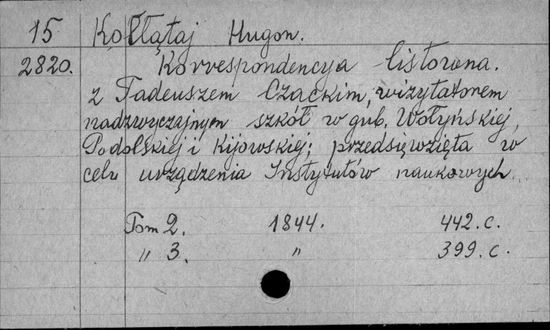 15 Kołłątaj Hugon.
2820. Korrespondencya listowna.
z Tadeuszem Czackim, wizytatorem
nadzwyczajnym szkół w gub. Wołyńskiej,
Podolskiej i Kijowskiej; przedsięwzięta w
celu urządzenia Instytutów naukowych.
Tom 2. 1844. 442. c.
" 3. " 399. c.